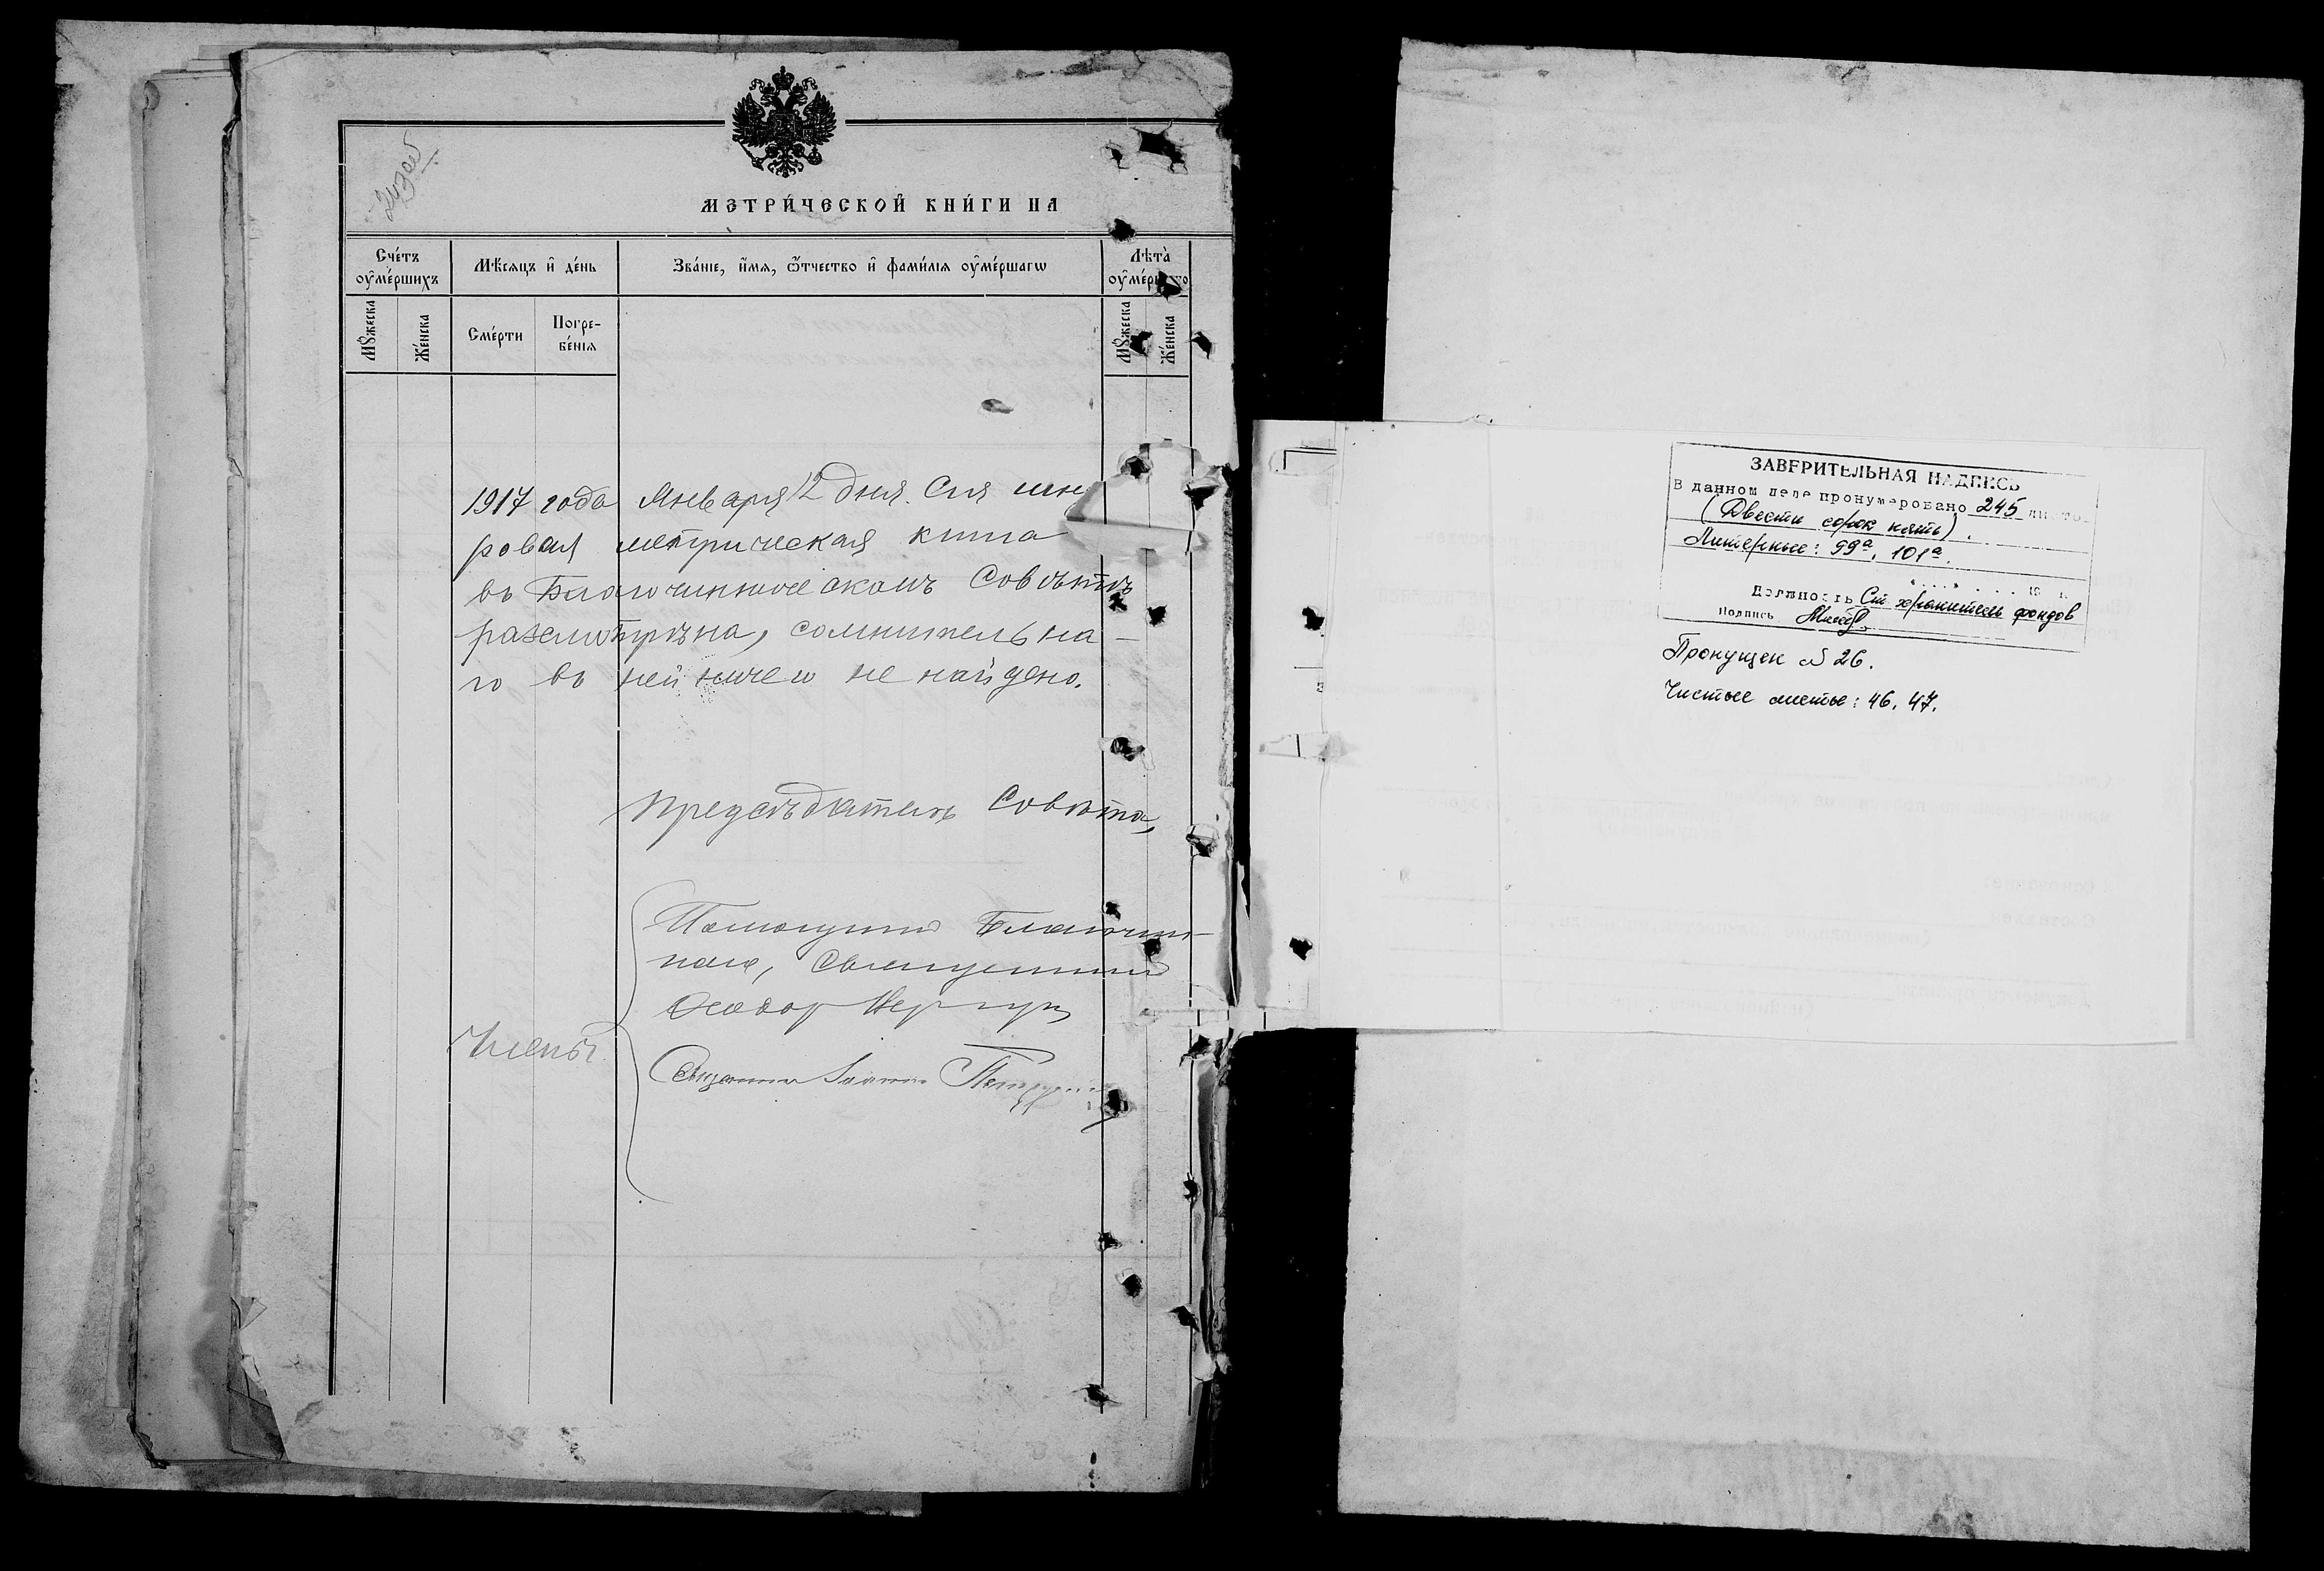 245 об
МЕТРИ́ЧЕСКОЙ КНИ́ГИ НА
Сче́тъ оу҆ме́ршихъ
Мѣ́сяцъ и҆ де́нь
Зва́нїе, и҆́мѧ, ѻ҆́тчество и҆ фами́лїѧ оу҆ме́ршагѡ
Лѣта̀
Мꙋ́жеска
Же́нска
Сме́рти
Погре-
бе́нїѧ
Мꙋ́жеска
Же́нска
1917 года Января 12 дня. Сія шну
ровая метрическая книга
въ Благочинническомъ Совѣтѣ
разсмотрѣна, сомнительна-
го въ ней ничего не найдено.
Предсѣдатель Совѣта,
Помощникъ Благочин-
наго, Священникъ
Ѳеодоръ
Члены:
Священникъ
ЗАВЕРИТЕЛЬНАЯ НАДПИСЬ
В данном деле пронумеровано 245 листо
(Двести сорок пять).
Литерные: 99а, 101а.
19 г.
Должность Ст. хранитель фондов
Подпись
Пропущен № 26.
Чистые листы: 46, 47.